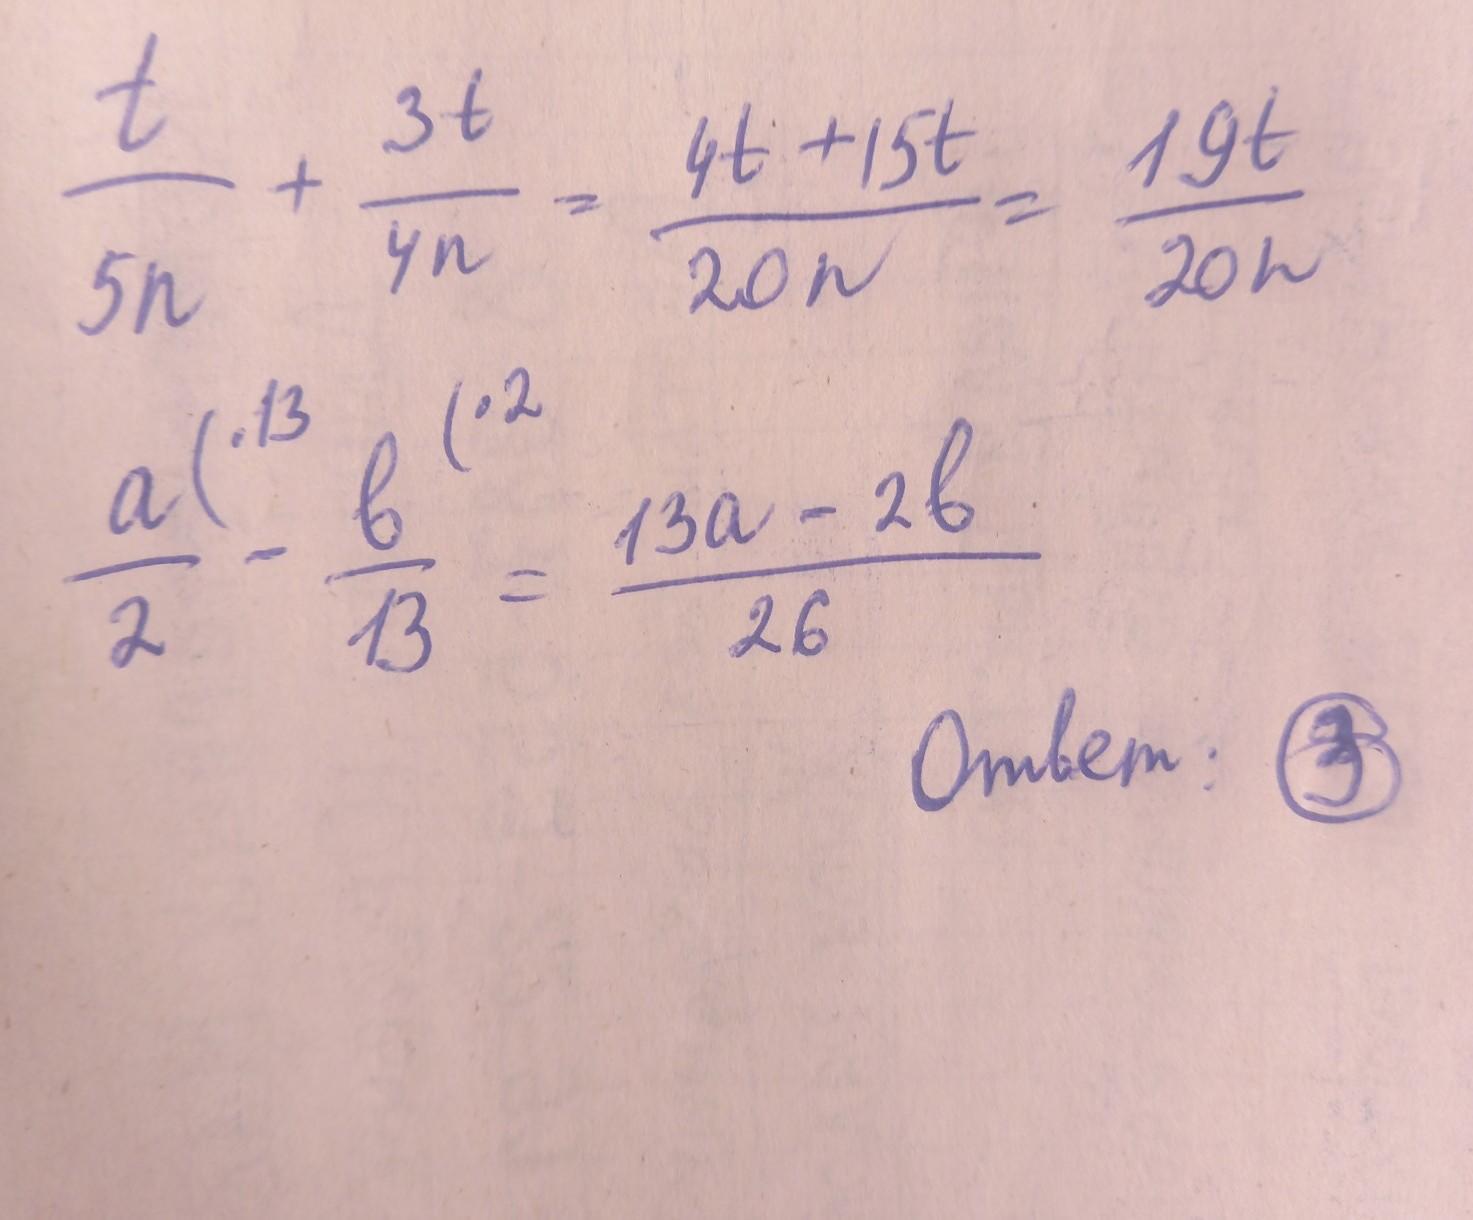 t/5n + 3t/4n = (4t + 15t)/20n = 19t/20n
a(·13/2 - b(·2/13 = (13a - 2b)/26
Ответ: 3